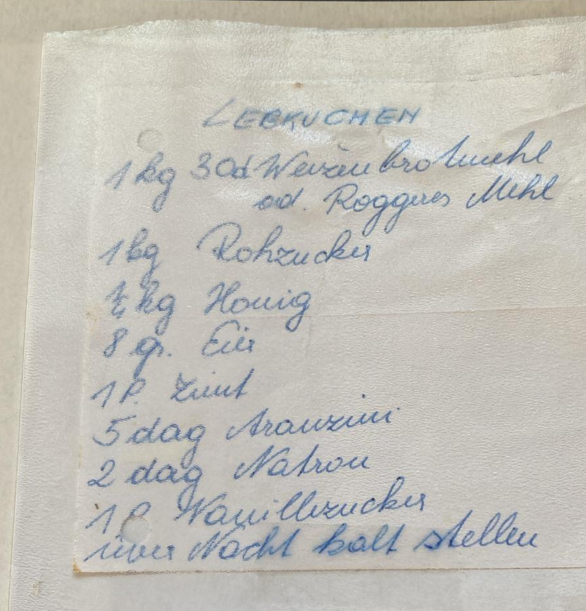 LEBKUCHEN
1 kg 30d Weizenbrotmehl
od. Roggenes Mehl
1 kg Rohzucker
kg Honig
8 gr. Eier
1 P. Zimt
5 dag Aranzini
2 dag Natron
1 P. Vanillezucker
über Nacht kalt stellen